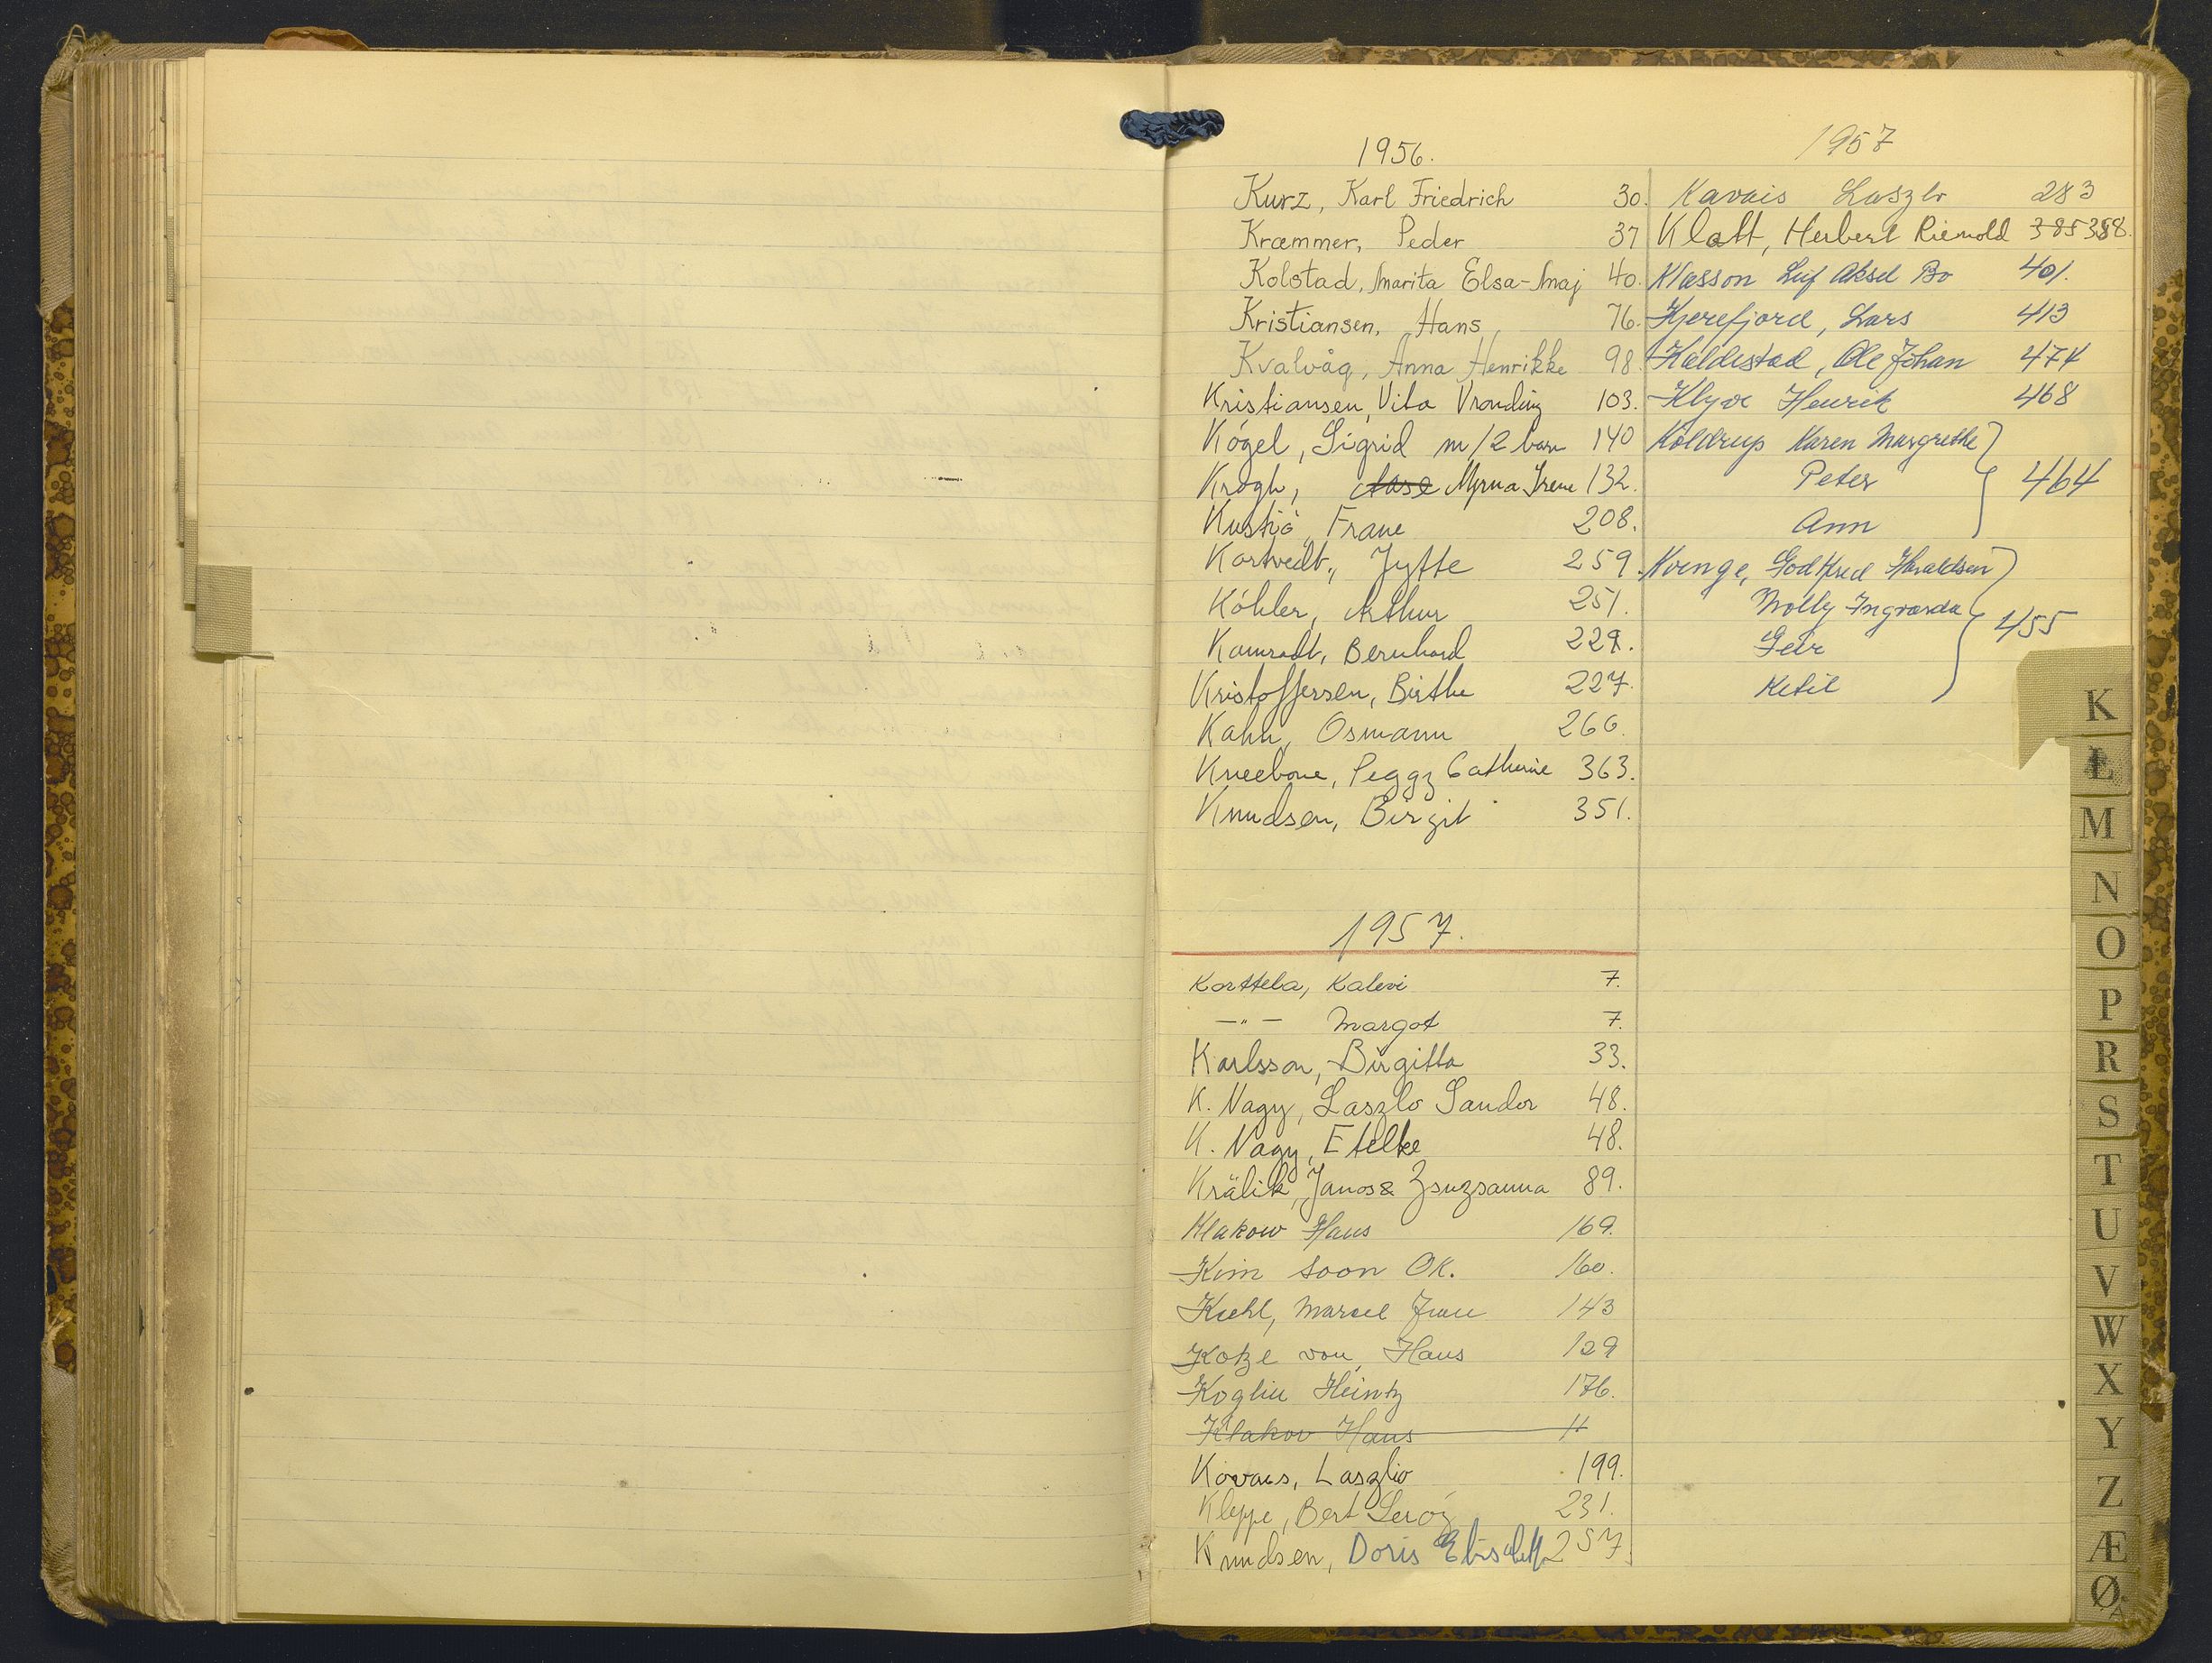 1956.
Kurz, Karl Friedrich 30.
Kræmmer, Peder 37
Kolstad, Marita Elsa-Maj 40.
Kristiansen, Hans 76.
Kvalvåg, Anna Henrikke 98.
Kristiansen, Vita 103.
Kógel, Sigrid m/2 barn 140
Krogh, Aase Myrna Irene 132.
Kustió, Frane 208.
Kortvedt, Jytte 259.
Köhler, Arthur 251.
Kamradt, Bernhard 229.
Kristoffersen, Birthe 227.
Kahn, Osmann 266.
Kneebone, Peggy Catherine 363.
Knudsen, Birgit 351.
1957.
Korttela, Kalevi 7.
—"— Margot 7.
Karlsson, Birgitta 33.
K. Nagy, Laszlo Sandor 48.
K. Nagy, Etelke 48.
Králik, Janos & Zsuzsanna 89.
Klakow Hans 169.
Kim Soon OK. 160.
Kuhl, Marcel 143
Kotze von, Hans 129
Koglin Heintz 176.
Klakov Hans "
Kovacs, Laszlio 199.
Kleppe, Bert Leroy 231.
Knudsen, Doris Elisabeth 257.
1957
Kavais Laszlo 283
Klatt, Herbert Rienold 385 388.
Klasson Leif Aksel Bo 401.
Kjerefjord, Lars 413
Kaldestad, Ole Johan 474
Klyve Henrik 468
Koldrup Karen Margrethe
Peter 464
Ann
Kvinge, Godtfred Haraldsen
Molly Ingvarda
Geir 455
Ketil
K
L
M
N
O
P
R
S
T
U
V
W
X
Y
Z
Æ
Ø
Å